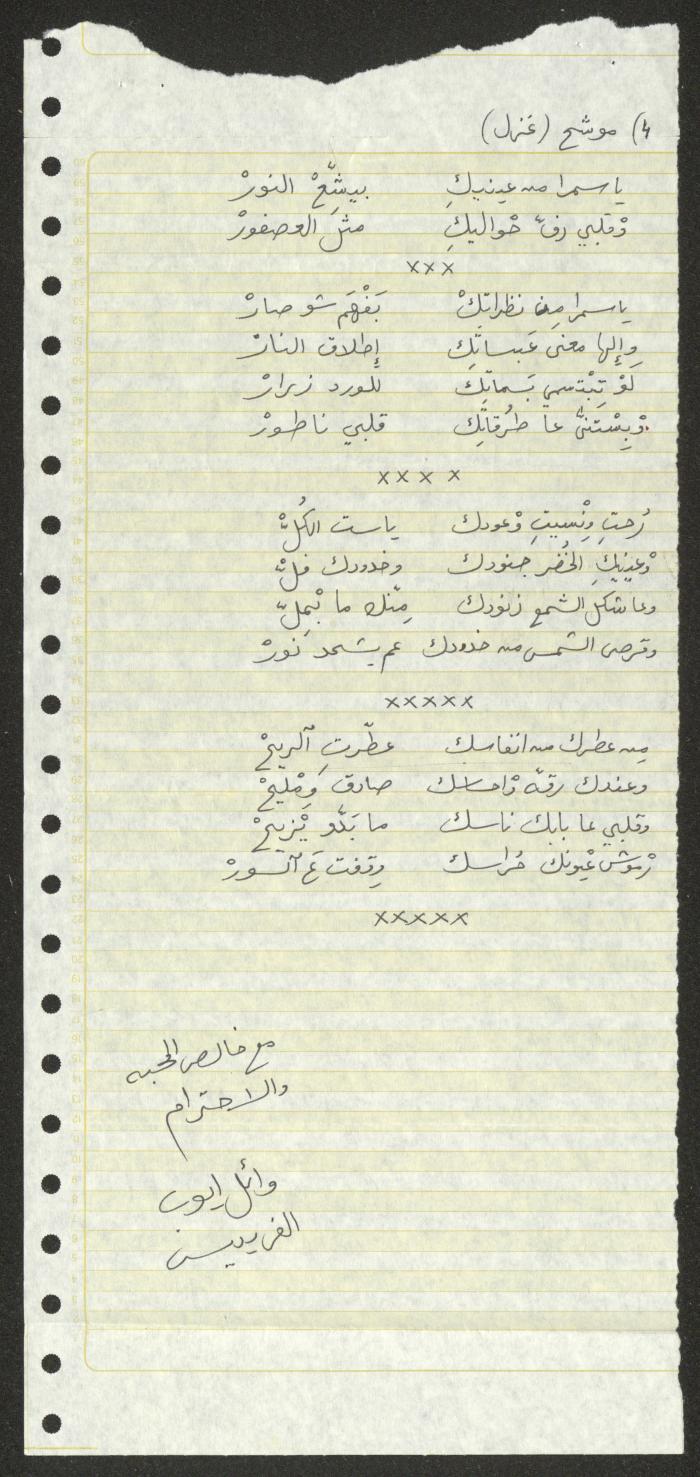 ٤) موشح (غزل)
ياسمرا من عينيكِ بيشِعّْ النورْ
وْقلبي رفّ حْواليكِ مثل العصفورْ
×××
ياسمرا مِن نظراتِكْ بَفْهَم شو صارْ
وِإلها معنى عَبساتِك إطلاق النارْ
لَوْ تِبْتسمي بَسماتِك للورد زرارْ
وْبِسْتنّى عا طُرقاتِك قلبي ناطورْ
××××
رُحتِ وِنْسيتِ وْعودك ياست الكُلّْ
وْعينيكِ الخُضر جنودك وخدودك فلّْ
وعا شكل الشمع زنودك مِنّك ما بْمِلّْ
وقرص الشمس من خدودك عم يشحد نورْ
×××××
مِن عطرك من انفاسك عطّرتِ الريحْ
وعندك رقّه وْاحساسك صادق وِمْليحْ
وقلبي عا بابك ناسك ما بَدّو يْزيحْ
رْموش عْيونك حُراسك وِقفت عَ السورْ
×××××
مع خالص المحبه
والاحترام
وائل ايوب
الفريديس